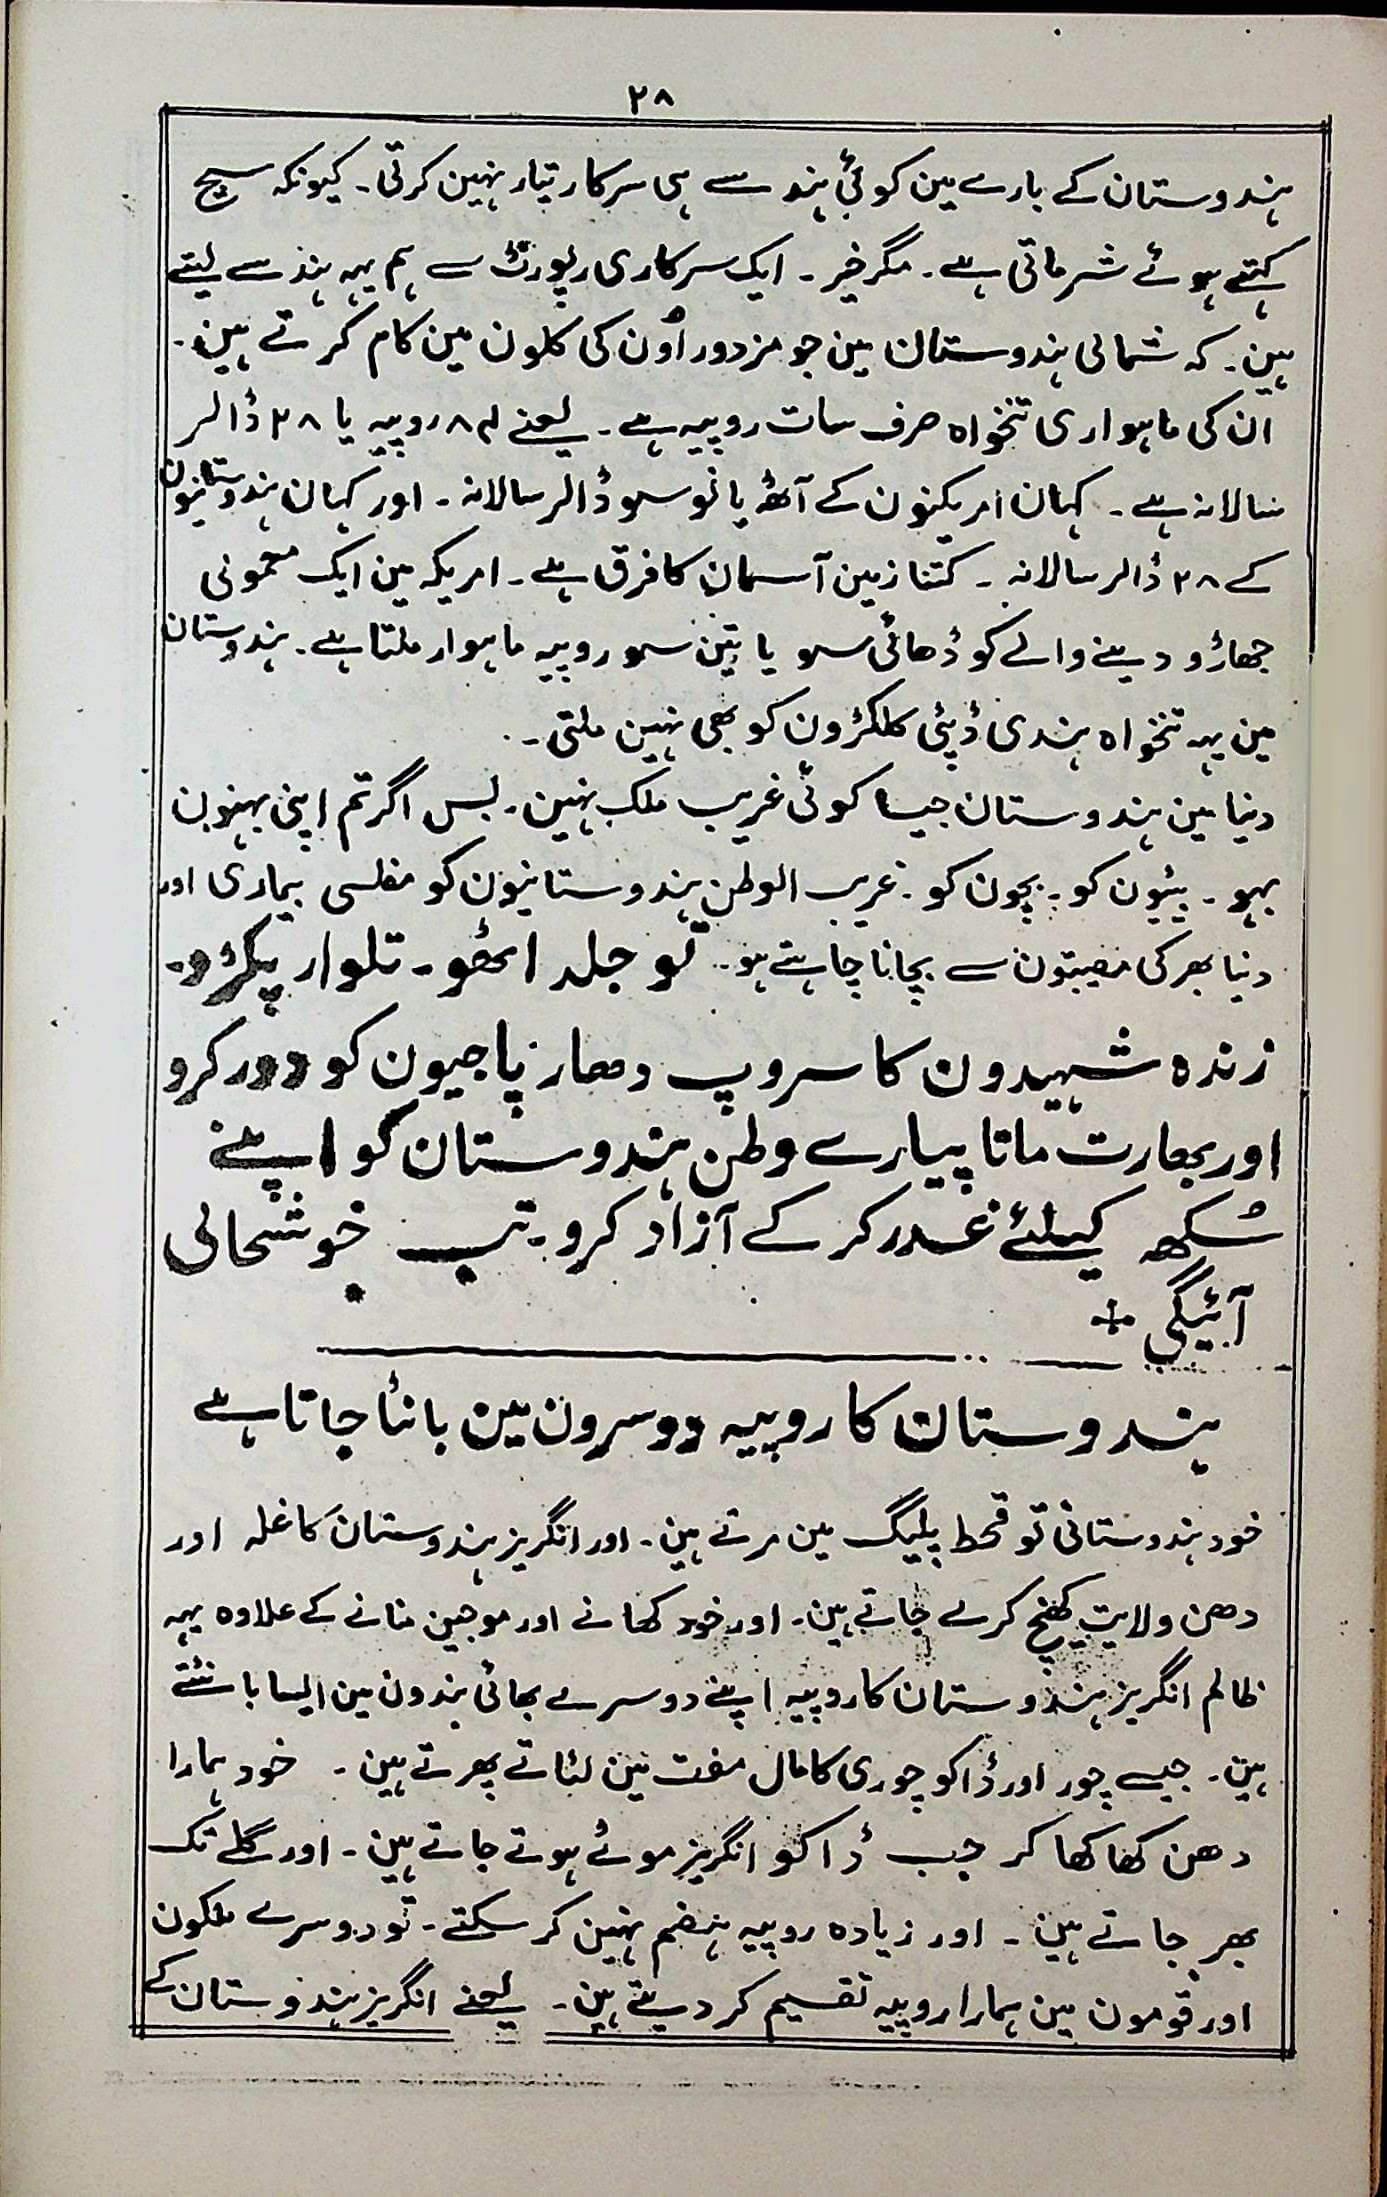 ۲۸
ہندوستان کے بارے مین کوئی ہندسے ہی سرکار تیار نہین کرتی۔ کیونکہ سچ
کہتے ہوئے شرماتی ہے۔ مگر خیر۔ ایک سرکاری رپورٹ سے ہم یہہ ہندسے لیتے
ہین۔ کہ شمالی ہندوستان مین جو مزدور اُون کی کلون مین کام کرتے ہین۔
ان کی ماہواری تنخواہ صرف سات روپیہ ہے۔ یعنے ۸۴ روپیہ یا ۲۸ ڈالر
سالانہ ہے۔ کہان امریکنون کے آٹھ یا نو سو ڈالر سالانہ۔ اور کہان ہندوستانیون
کے ۲۸ ڈالر سالانہ۔ کتنا زمین آسمان کا فرق ہے۔ امریکہ مین ایک معمولی
جھاڑو دینے والے کو ڈھائی سو یا تین سو روپیہ ماہوار ملتا ہے۔ ہندوستان
مین یہہ تنخواہ ہندی ڈپٹی کلکٹرون کو بھی نہین ملتی۔
دنیا مین ہندوستان جیسا کوئی غریب ملک نہین۔ بس اگر تم اپنی بہنون
بہو۔ بیٹیون کو۔ بچون کو۔ غریب الوطن ہندوستانیون کو مفلسی بیماری اور
دنیا بھر کی مصیبتون سے بچانا چاہتے ہو۔ تو جلد اٹھو۔ تلوار پکڑو۔
زندہ شہیدون کا سروپ دھار پاجیون کو دور کرو
اور بھارت ماتا پیارے وطن ہندوستان کو اپنے
سُکھ کیلئے غدر کر کے آزاد کرو۔ تب خوشحالی
آئیگی +
ہندوستان کا روپیہ دوسرون مین بانٹا جاتا ہے
خود ہندوستانی تو قحط پلیگ مین مرتے ہین۔ اور انگریز ہندوستان کا غلہ اور
دھن ولایت کھنچ کر لے جاتے ہین۔ اور خود کھانے اور موجین منانے کے علاوہ یہہ
ظالم انگریز ہندوستان کا روپیہ اپنے دوسرے بھائی بندون مین ایسا بانٹتے
ہین۔ جیسے چور اور ڈاکو چوری کا مال مفت مین لٹاتے پھرتے ہین۔ خود ہمارا
دھن کھا کھا کر جب ڈاکو انگریز موٹے ہوتے جاتے ہین۔ اور گلے تک
بھر جاتے ہین۔ اور زیادہ روپیہ ہضم نہین کر سکتے۔ تو دوسرے ملکون
اور قومون مین ہمارا روپیہ تقسیم کر دیتے ہین۔ یعنے انگریز ہندوستان کے